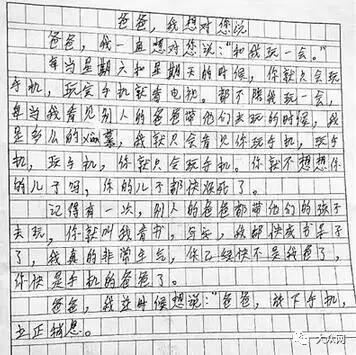 爸爸，我想对您说
爸爸，我一直想对您说："和我玩一会。"
每当星期六和星期天的时候，你就只会玩
手机，玩完手机就看电视。都不陪我玩一会，
每当我看见别人的爸爸带他们去玩的时候，我
是多么的xiàn慕，我就只会看见你玩手机，玩手
机，玩手机，你就只会玩手机。你就不想想你
的儿子吗，你的儿子都快没死了。
记得有一次，别人的爸爸都带他们的孩子
去玩，你就叫我看书，写字，我都快成书呆子
了，我真的非常生气，你已经快不是我爸了，
你快是手机的爸爸了。
爸爸，我这时候想说："爸爸，放下手机，
改正错息。
大众网